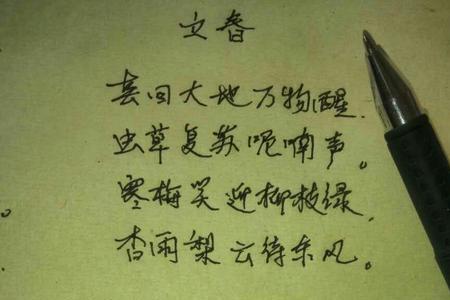 立春
春回大地万物醒.
虫草复苏呢喃声。
寒梅笑迎柳枝绿.
杏雨梨云待东风。